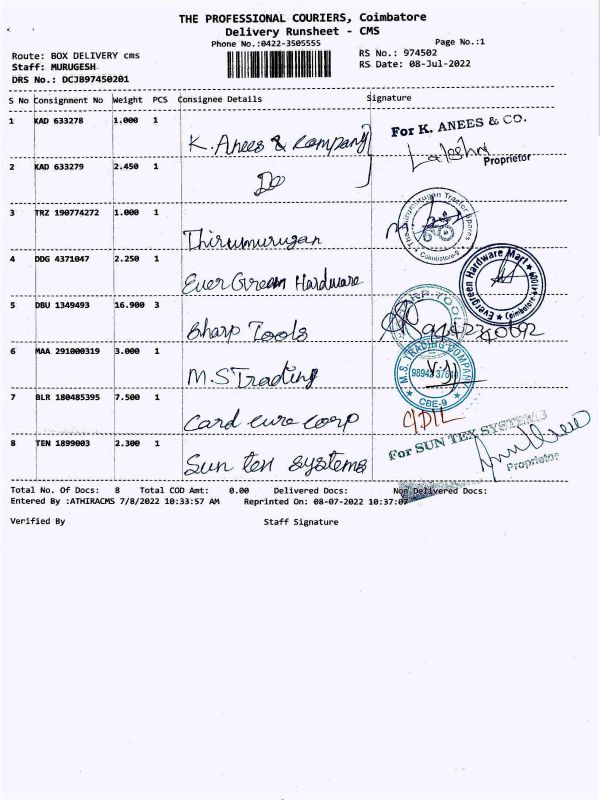 THE PROFESSIONAL COURIERS, Coimbatore
Delivery Runsheet - CMS
Phone No.:0422-3505555
Page No.:1
Route: BOX DELIVERY cms
RS No.: 974502
Staff: MURUGESH
RS Date: 08-Jul-2022
DRS No.: DCJB97450201
S No Consignment No Weight PCS Consignee Details Signature
1 KAD 633278 1.000 1 K. Anees & Company For K. ANEES & CO.
Proprietor
2 KAD 633279 2.450 1 Do
3 TRZ 190774272 1.000 1 Thirumurugan Thirumurugan Tractor Spares Coimbatore-9
4 DDG 4371047 2.250 1 Ever Green Hardware Evergreen Hardware Mart
5 DBU 1349493 16.900 3 Sharp Tools 9442340692
6 MAA 291000319 3.000 1 M.S Trading M.S. TRADING COMPANY CBE-9
7 BLR 180485395 7.500 1 Card cure corp
8 TEN 1899003 2.300 1 Sun tex systems For SUN TEX SYSTEMS
Proprietor
Total No. Of Docs: 8 Total COD Amt: 0.00 Delivered Docs: Non Delivered Docs:
Entered By :ATHIRACMS 7/8/2022 10:33:57 AM Reprinted On: 08-07-2022 10:37:07
Verified By Staff Signature